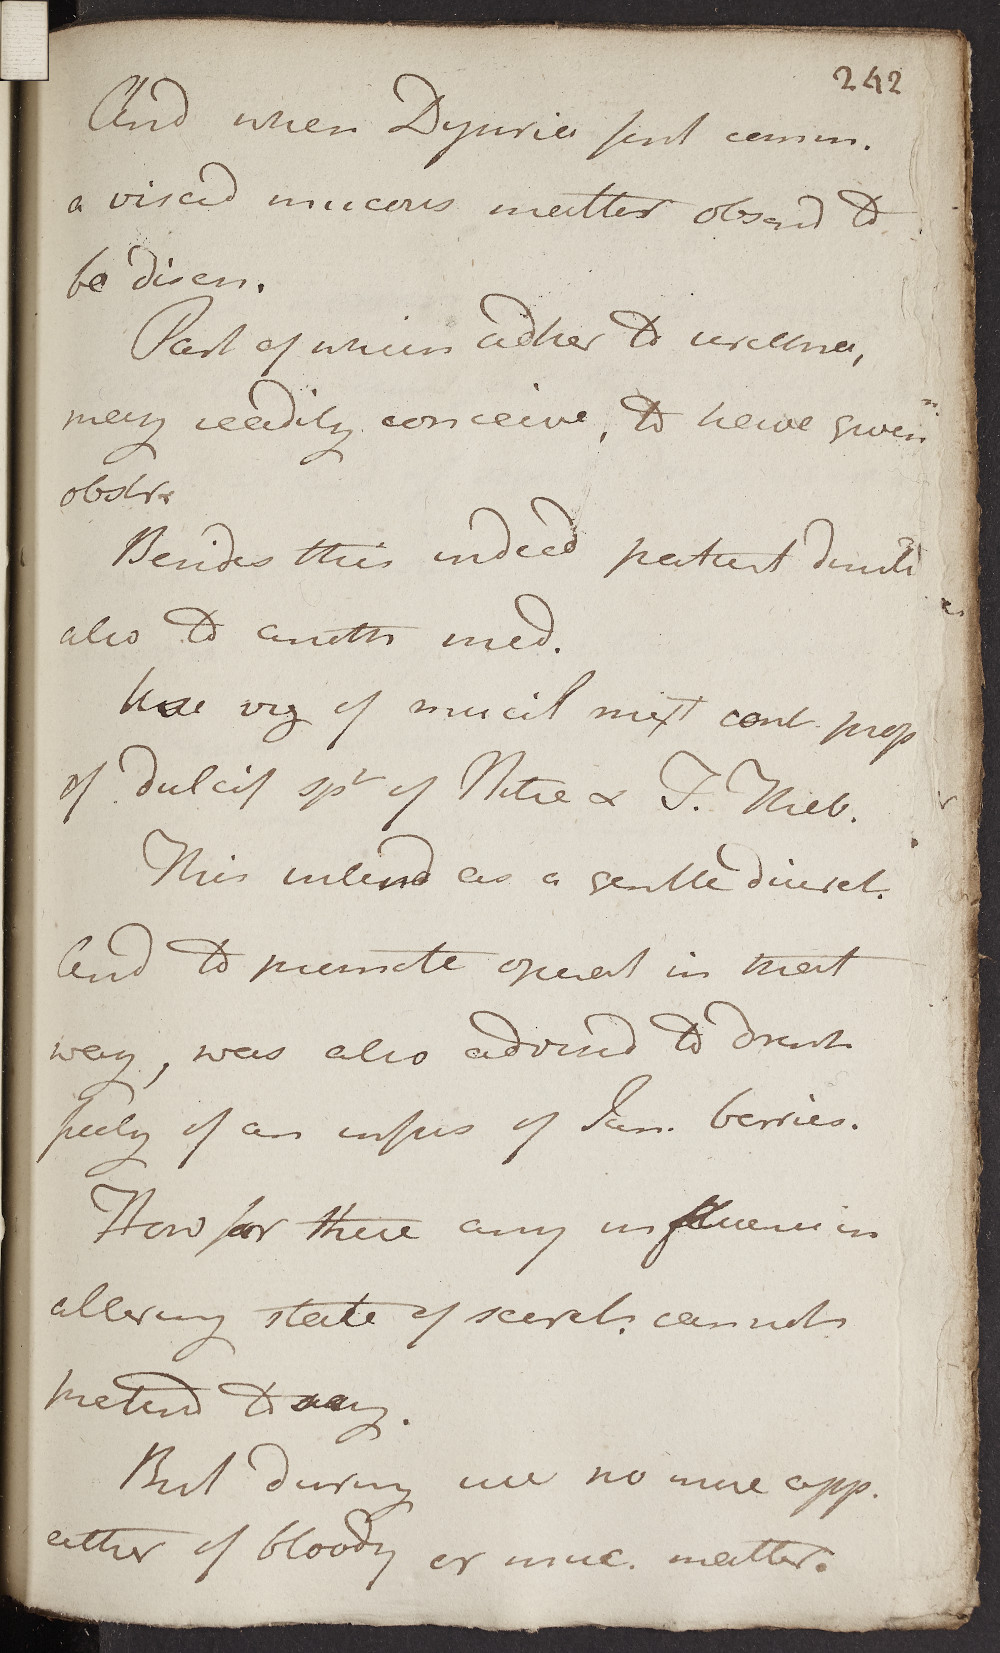 242
And when Dysuria first comm.
a viscid mucous matter observd to
be disch.
Part of which adher to urethra,
may readily conceive, to have given
obstr.
Besides this indeed patient
also to anoth med.
Use viz of mucil mixt cont. prop
of dulcif spt of Nitre & T. Theb.
This intend as a gentle diuret.
And to promote operat in that
way, was also advised to drink
freely of an infus of Jun. berries.
How far these any influence in
altering state of secret. cannot
pretend to say.
But during use no more app.
either of bloody or muc. matter.